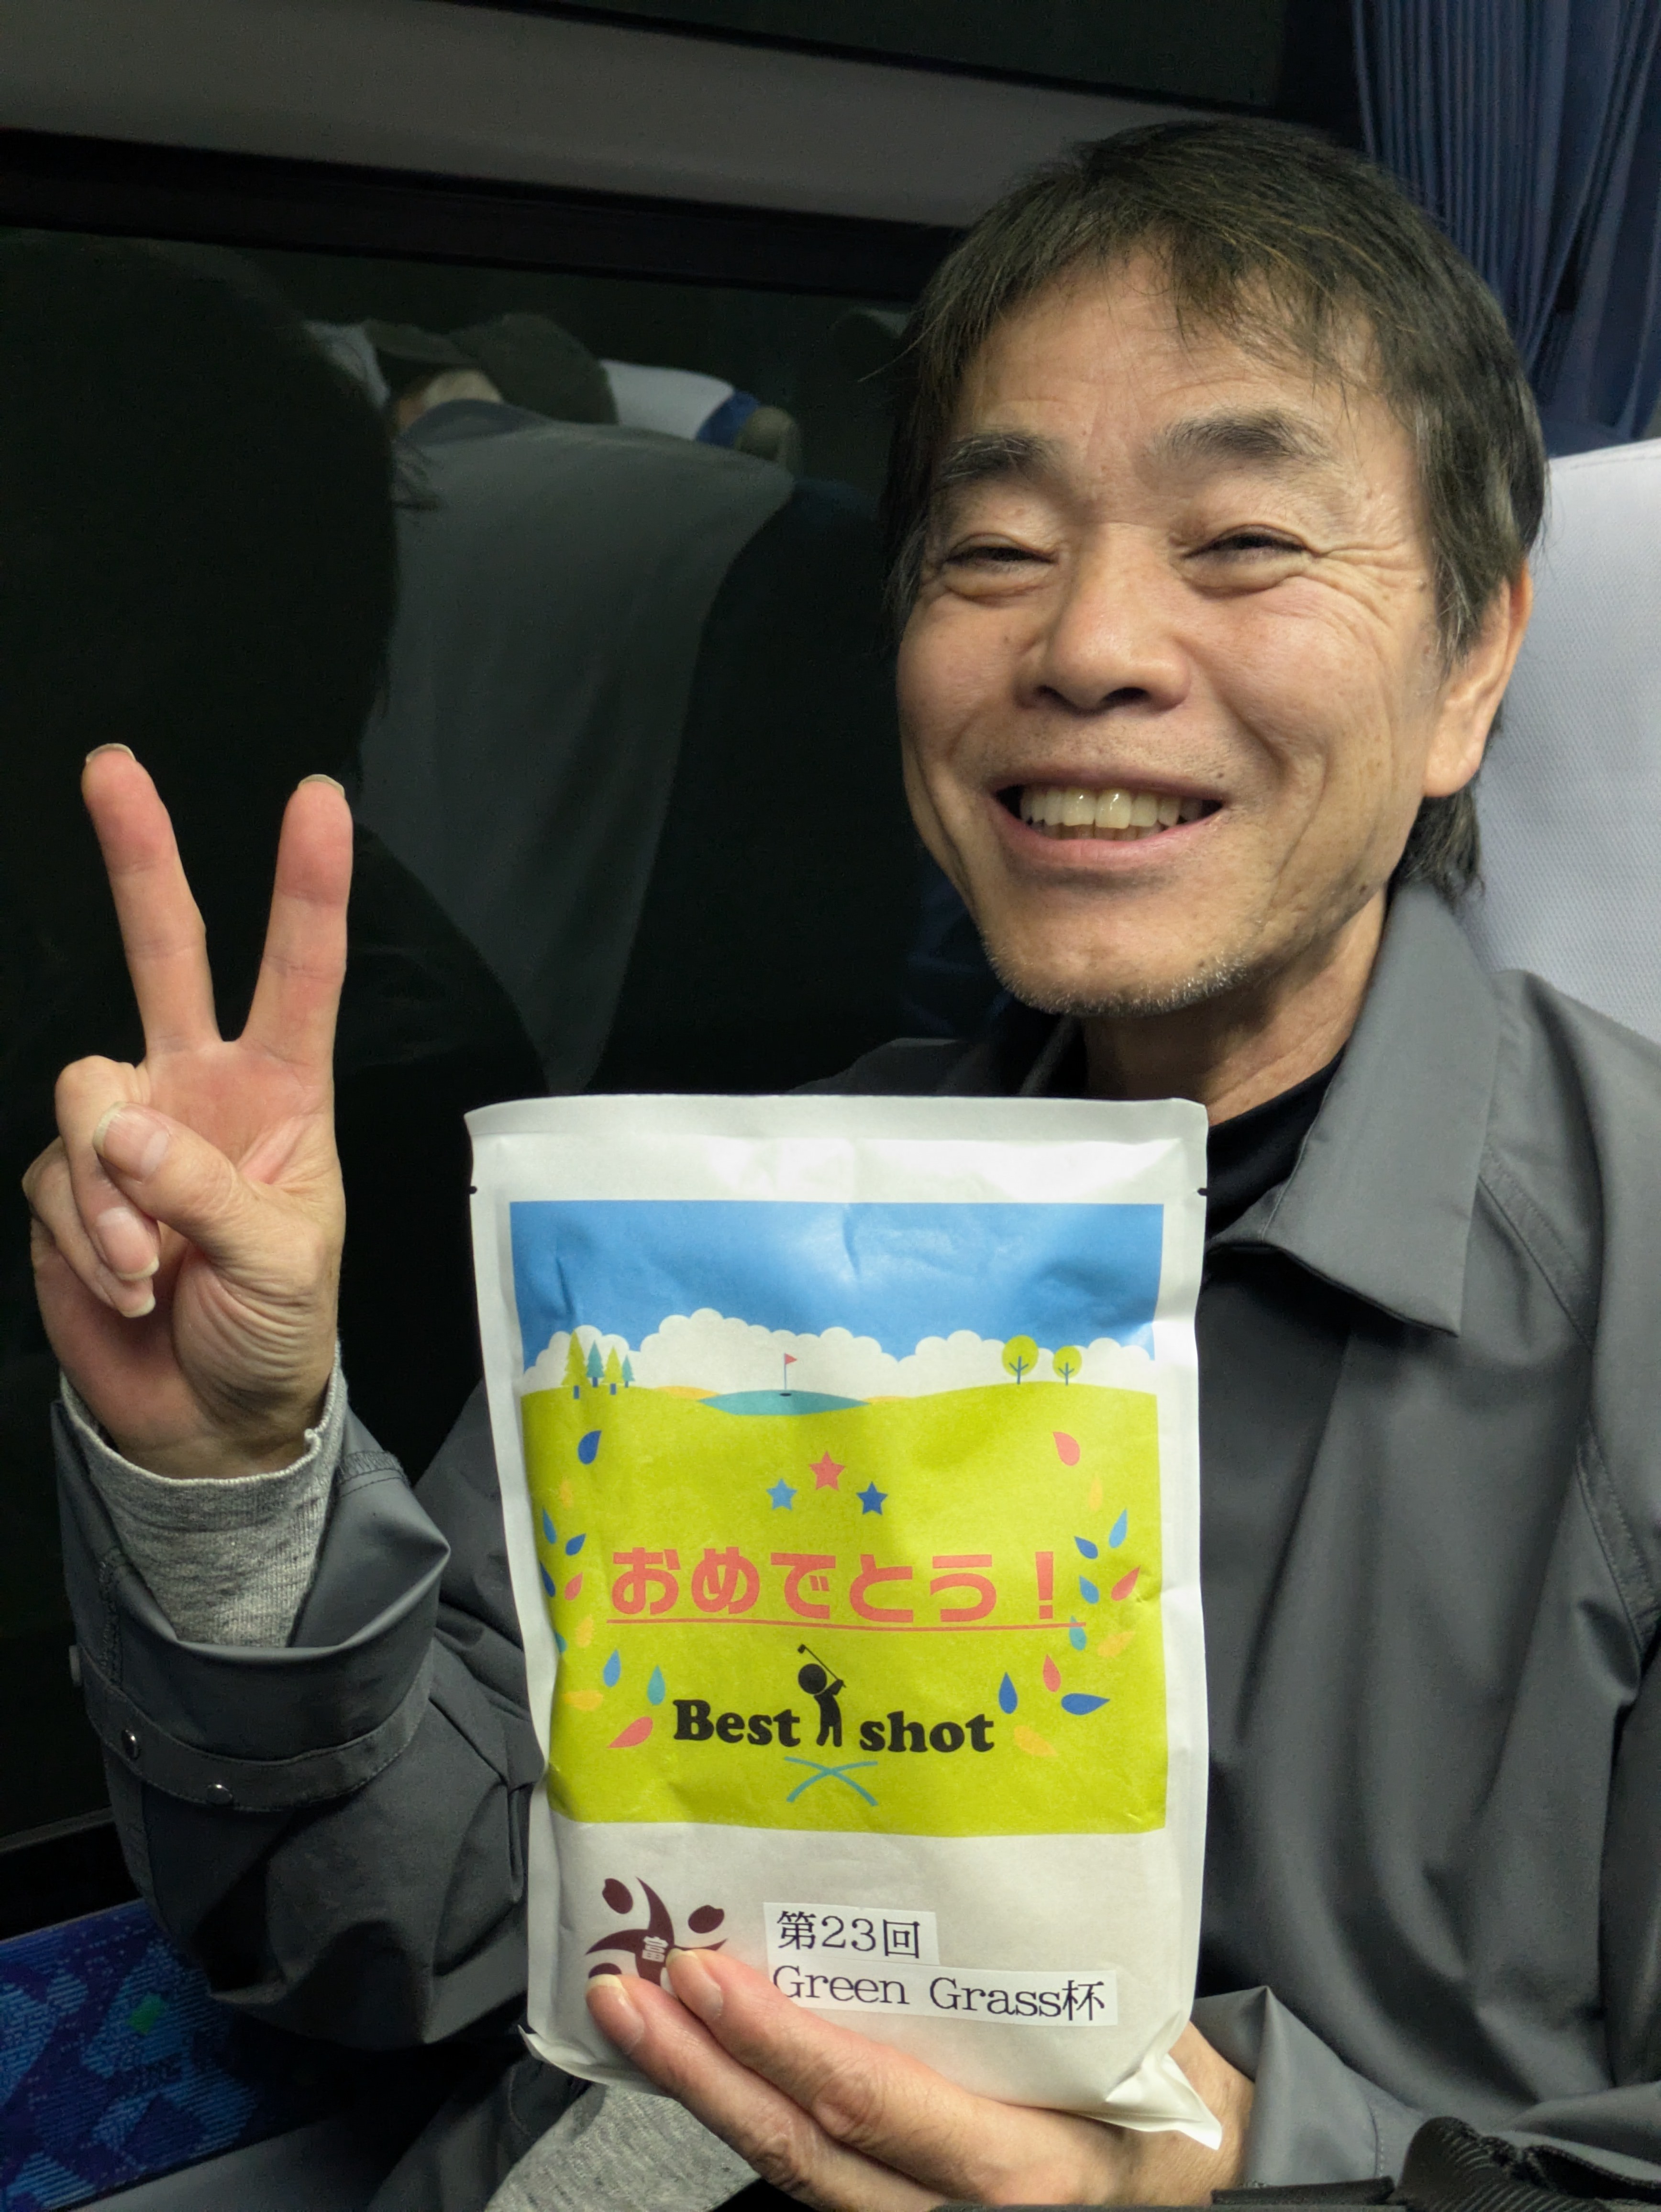 おめでとう！
Best shot
富
第23回
Green Grass杯